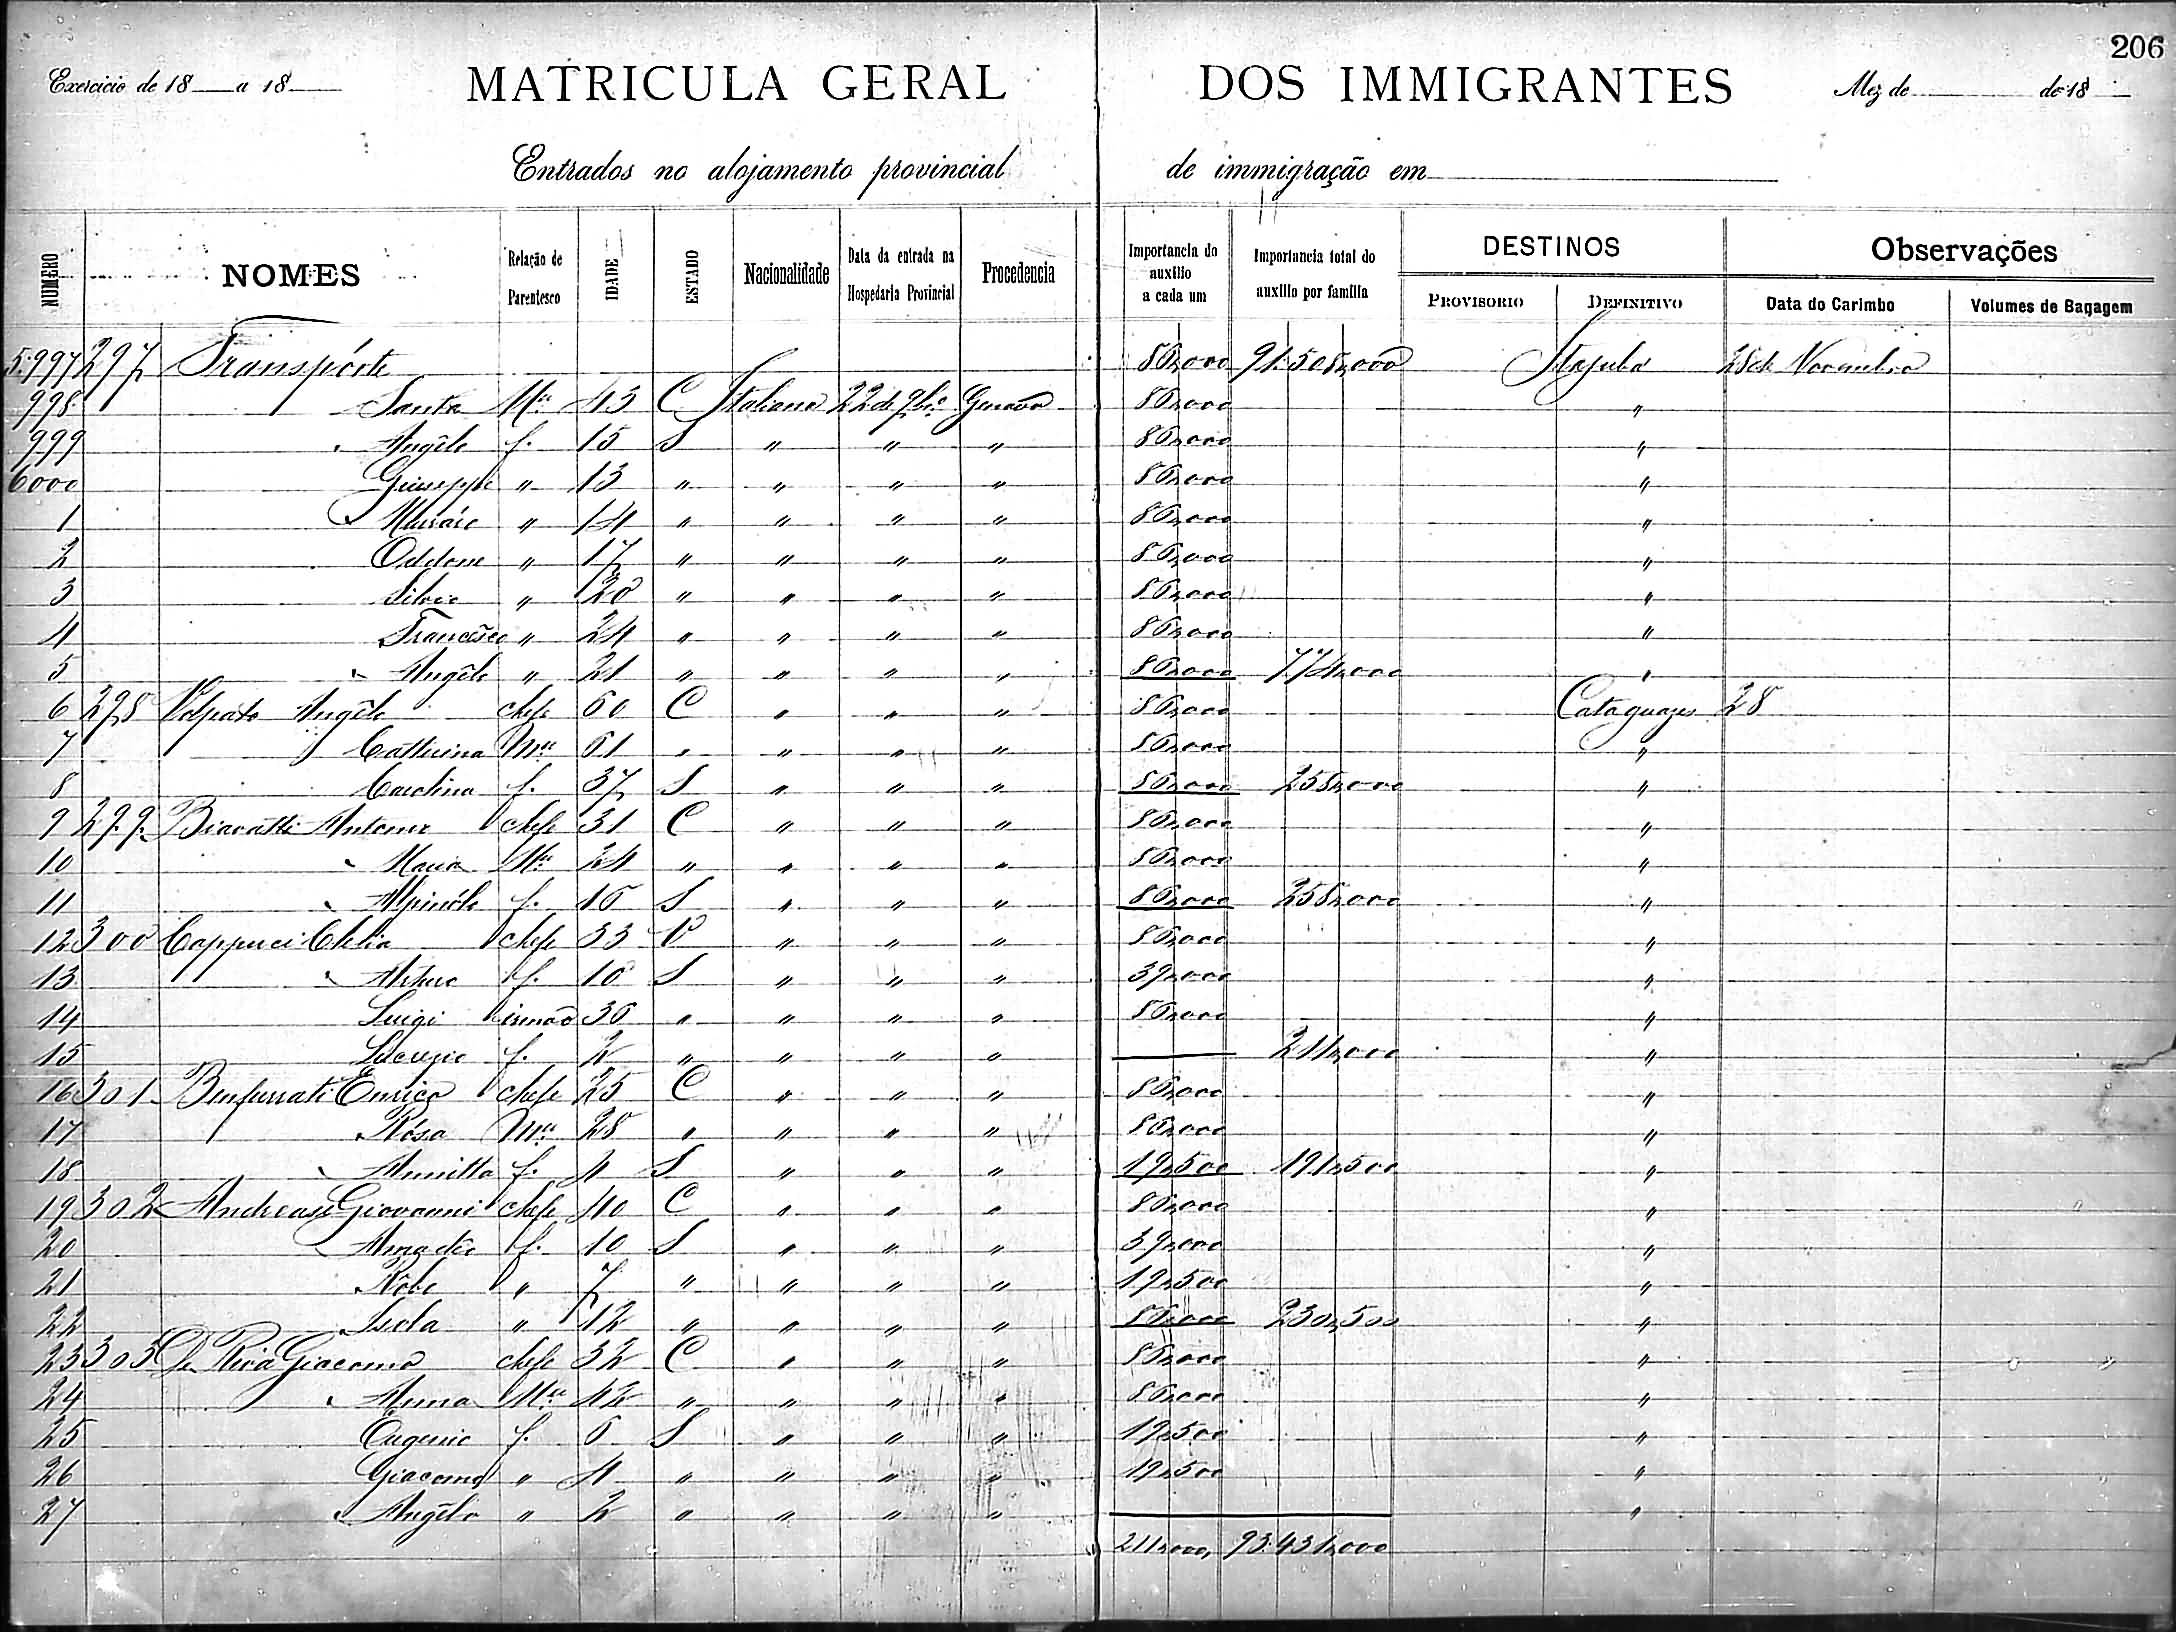 206
Exercicio de 18 a 18 MATRICULA GERAL DOS IMMIGRANTES Mez de de 18
Entrados no alojamento provincial de immigração em
NUMERO NOMES Relação de Parentesco IDADE ESTADO Nacionalidade Data da entrada na Hospedaria Provincial Procedencia Importancia do auxilio a cada um Importancia total do auxilio por familia DESTINOS PROVISORIO DEFINITIVO Observações Data do Carimbo Volumes de Bagagem
5.997 297 Transpórte 86,000 91:508,000 Itajubá 28 de Novembro
998 Santa Mer 43 C Italiana 22 de 9bro Genova 86,000 "
999 " Angêlo f. 15 S " " " 86,000 "
6000 Giuseppe " 13 " " " " 86,000 "
1 " " 14 " " " " 86,000 "
2 Oddone " 17 " " " " 86,000 "
3 Silvio " 20 " " " " 86,000 "
4 Francêsco " 24 " " " " 86,000 "
5 " Angêlo " 21 " " " " 86,000 774,000 "
6 298 Volpato Angêlo chefe 60 C " " " 86,000 Cataguazes 28
7 Catterina Mer 61 " " " " 86,000 "
8 Carolina f. 37 S " " " 86,000 258,000 "
9 299 Antonio chefe 31 C " " " 86,000 "
10 " Maria Mer 24 " " " " 86,000 "
11 " f. 16 S " " " 86,000 258,000 "
12 300 Cappucci Clelia chefe 33 V " " " 86,000 "
13 " Arturo f. 10 S " " " 39,000 "
14 Luigi irmão 36 " " " " 86,000 "
15 f. 2 " " " " 211,000 "
16 301 Enrico chefe 25 C " " " 86,000 "
17 Rósa Mer 28 " " " " 86,000 "
18 " Annitta f. 4 S " " " 19,500 191,500 "
19 302 Andreasi Giovanni chefe 40 C " " " 86,000 "
20 " Amadêo f. 10 S " " " 39,000 "
21 " 7 " " " " 19,500 "
22 Isola " 12 " " " " 86,000 230,500 "
23 303 De Riva Giacomo chefe 32 C " " " 86,000 "
24 " Anna Mer 42 " " " " 86,000 "
25 Eugenio f. 6 S " " " 19,500 "
26 Giacomo " 4 " " " " 19,500 "
27 " Angêlo " 2 " " " " "
211,000, 93:431,000